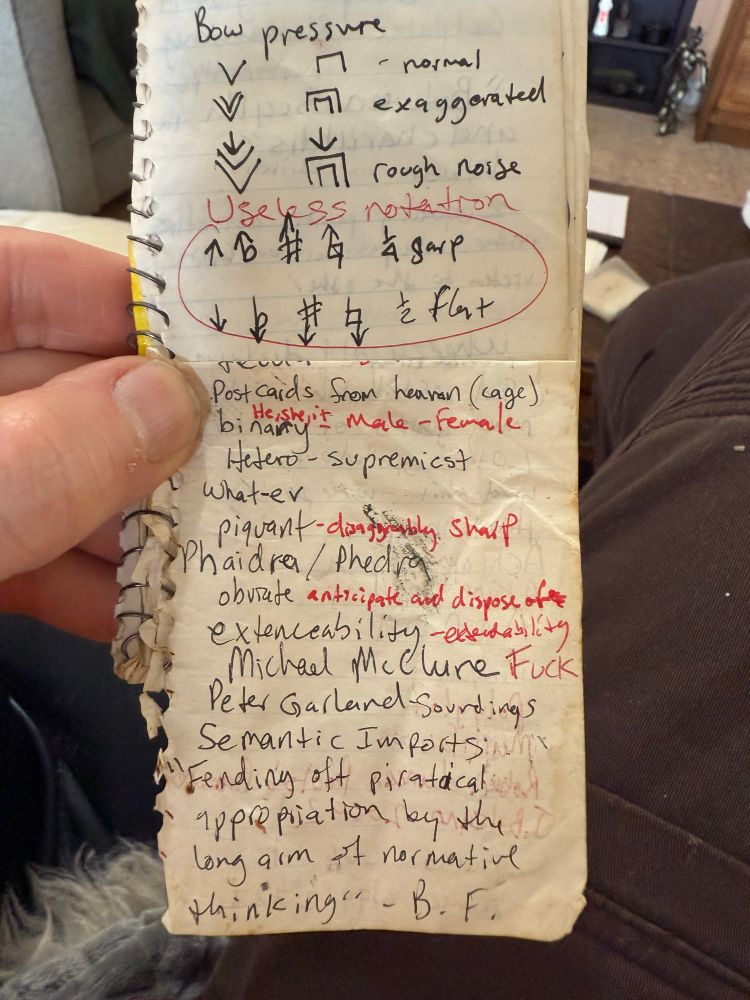 Bow pressure
V ⊓ - normal
exaggerated
rough noise
Useless notation
↑ b # ♮ ¼ sarp
↓ b # ♮ ½ flat
Postcards from heavan (cage)
binary He, she, it - Male - Female
Hetero - supremicst
What-er
piquant - disaggreably sharp
Phaidra / Phedra
obviate anticipate and dispose of
extenceability - extendability
Michael McClure Fuck
Peter Garland - Soundings
Semantic Imports
"Fending off piratical
appropriation by the
long arm of normative
thinking" - B. F.